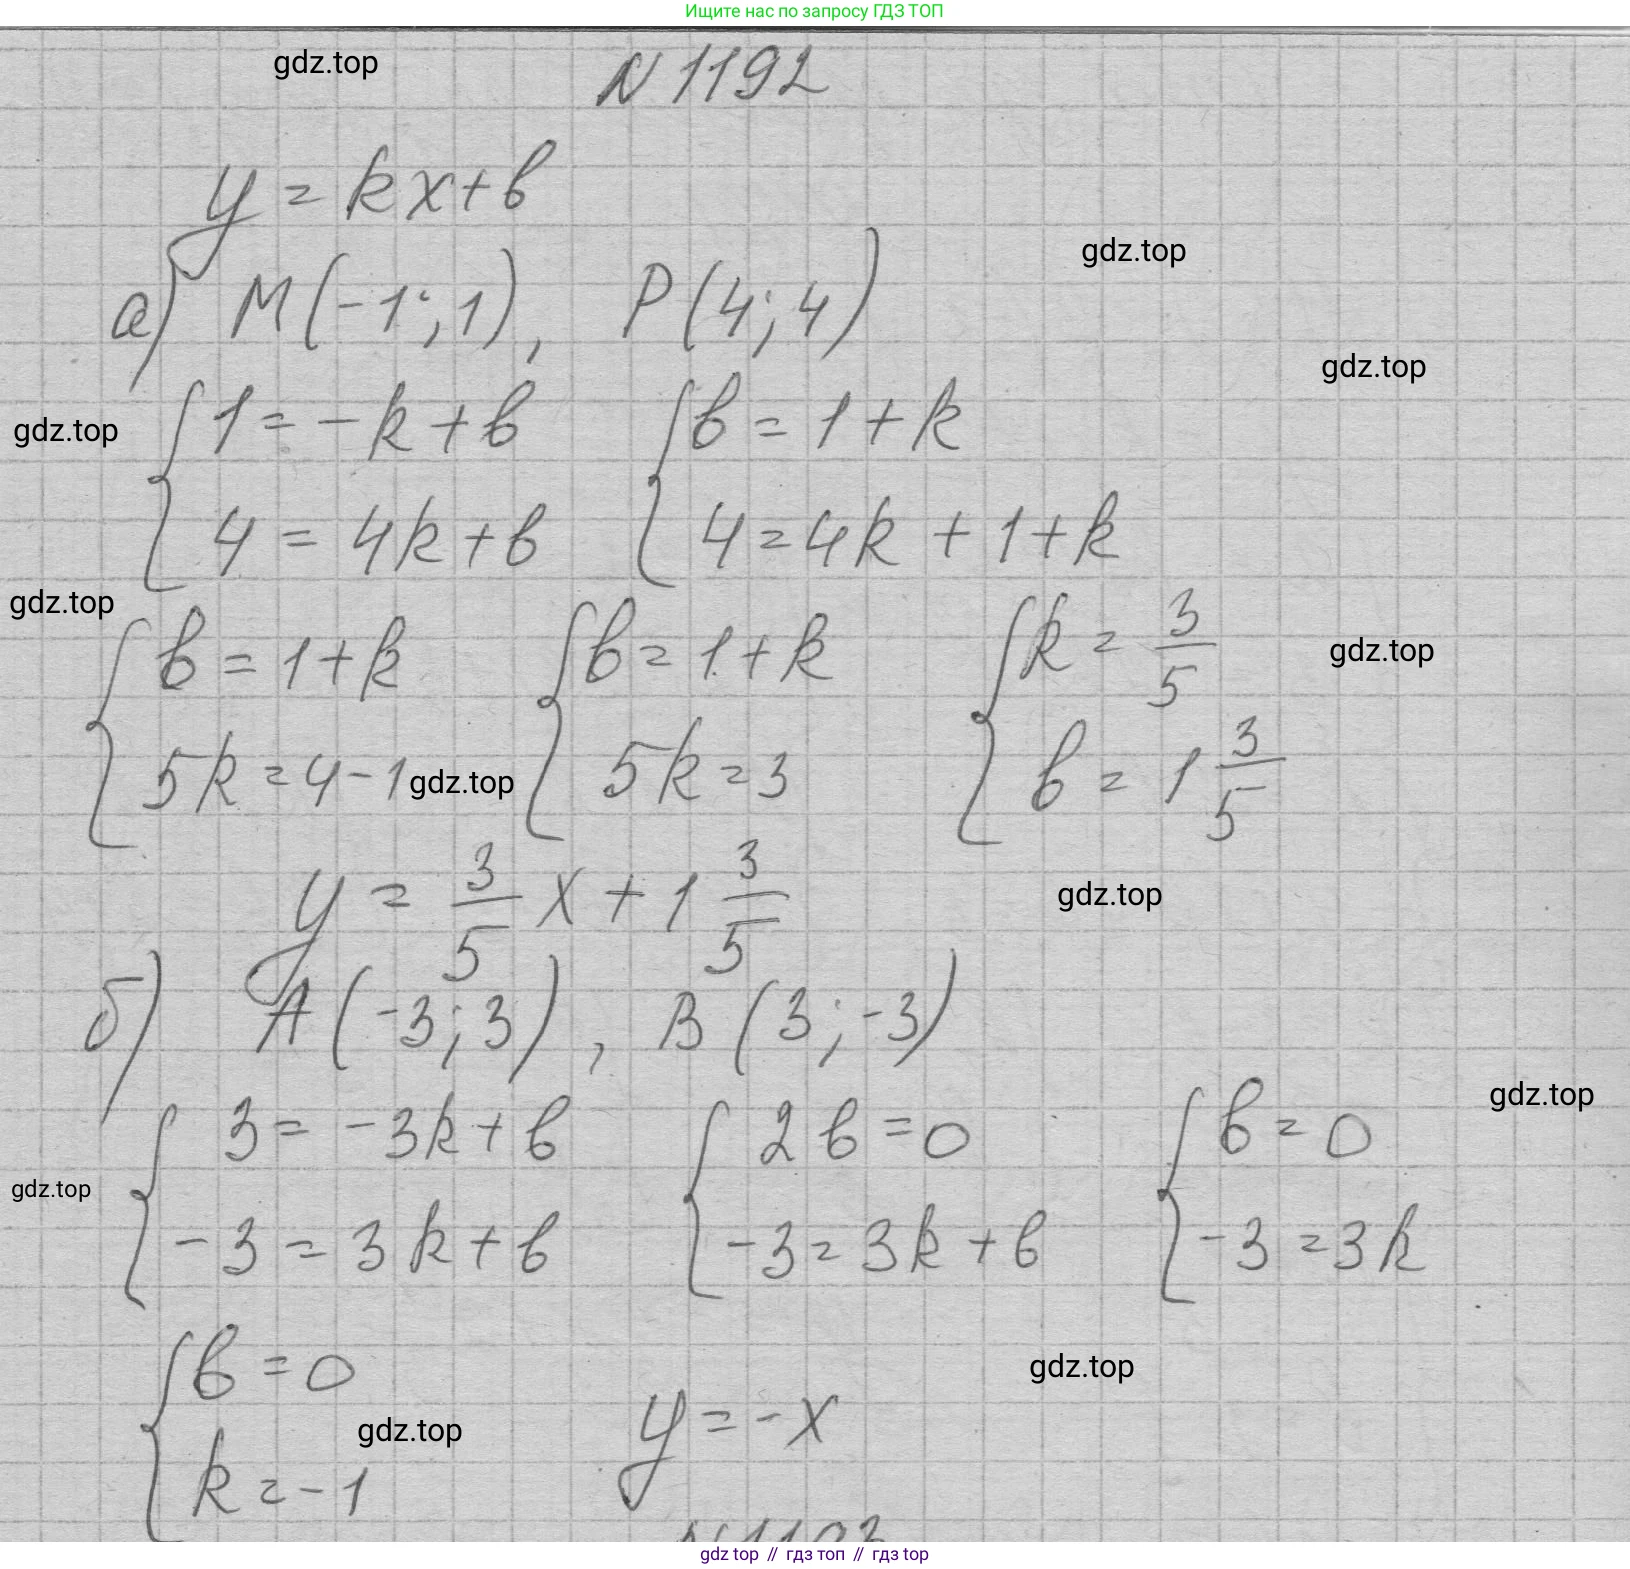 Ищите нас по запросу ГДЗ ТОП
gdz.top
N 1192
y = kx + b
gdz.top
а) M(-1; 1), P(4; 4)
gdz.top
gdz.top
{ 1 = -k + b { b = 1 + k
4 = 4k + b 4 = 4k + 1 + k
gdz.top
{ b = 1 + k { b = 1 + k { k = 3/5
gdz.top
5k = 4 - 1 5k = 3 b = 1 3/5
gdz.top
y = 3/5 x + 1 3/5
gdz.top
б) A(-3; 3), B(3; -3)
gdz.top
{ 3 = -3k + b { 2b = 0 { b = 0
gdz.top
-3 = 3k + b -3 = 3k + b -3 = 3k
{ b = 0
gdz.top
gdz.top
k = -1 y = -x
gdz top // гдз топ // гдз top